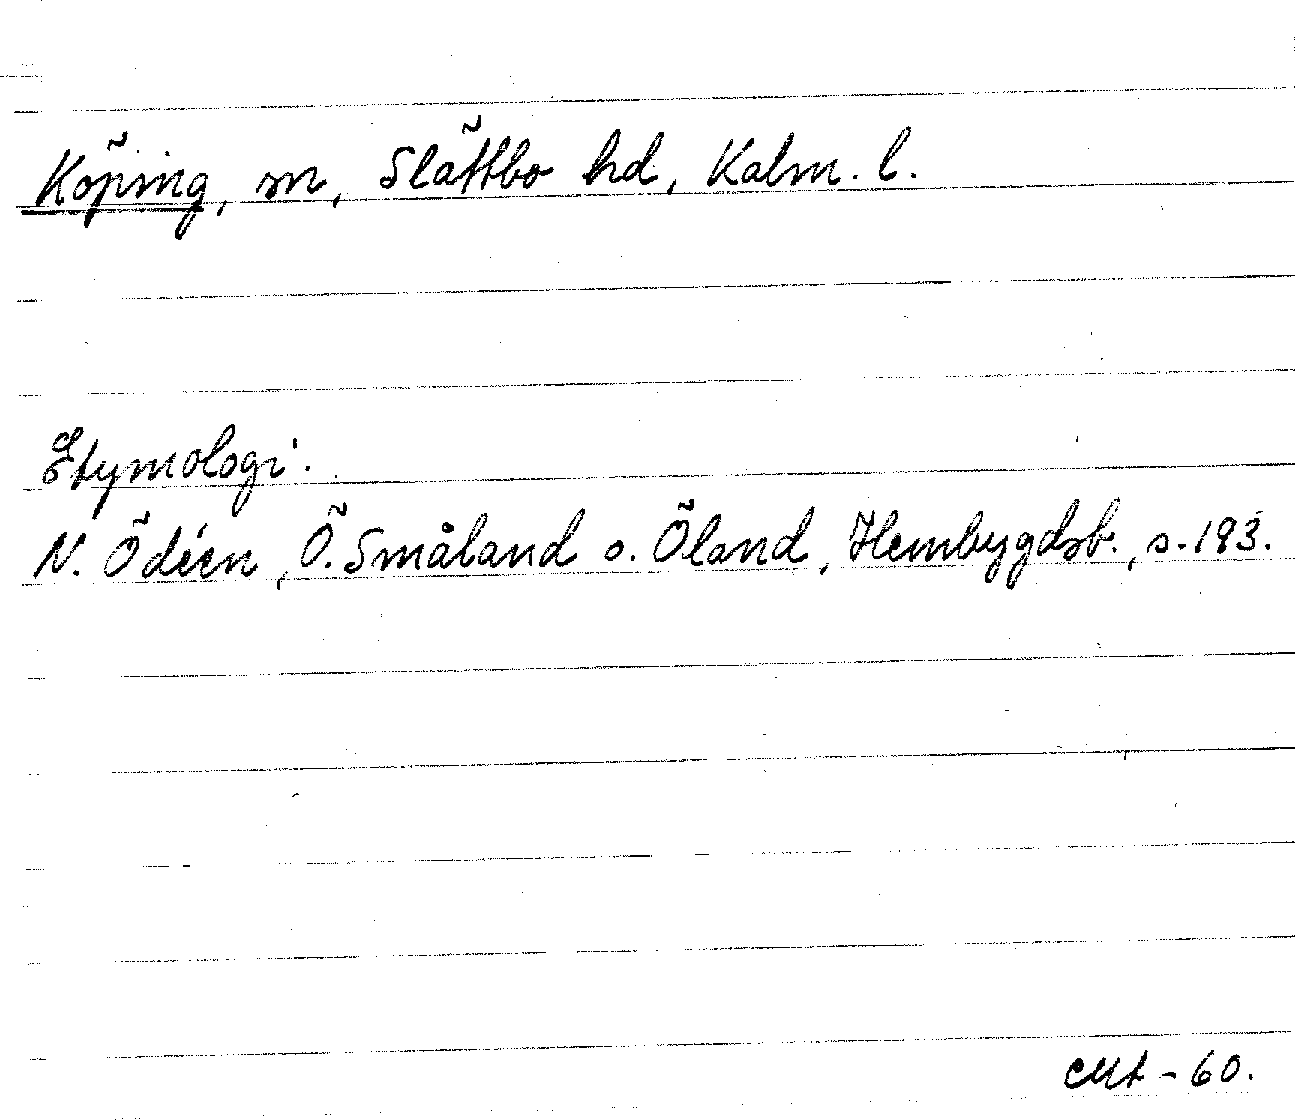 Köping, sn, Slättbo hd, Kalm. l.
Etymologi.
N. Ödéen, Ö. Småland o. Öland, Hembygdsb., s. 193.
-60.